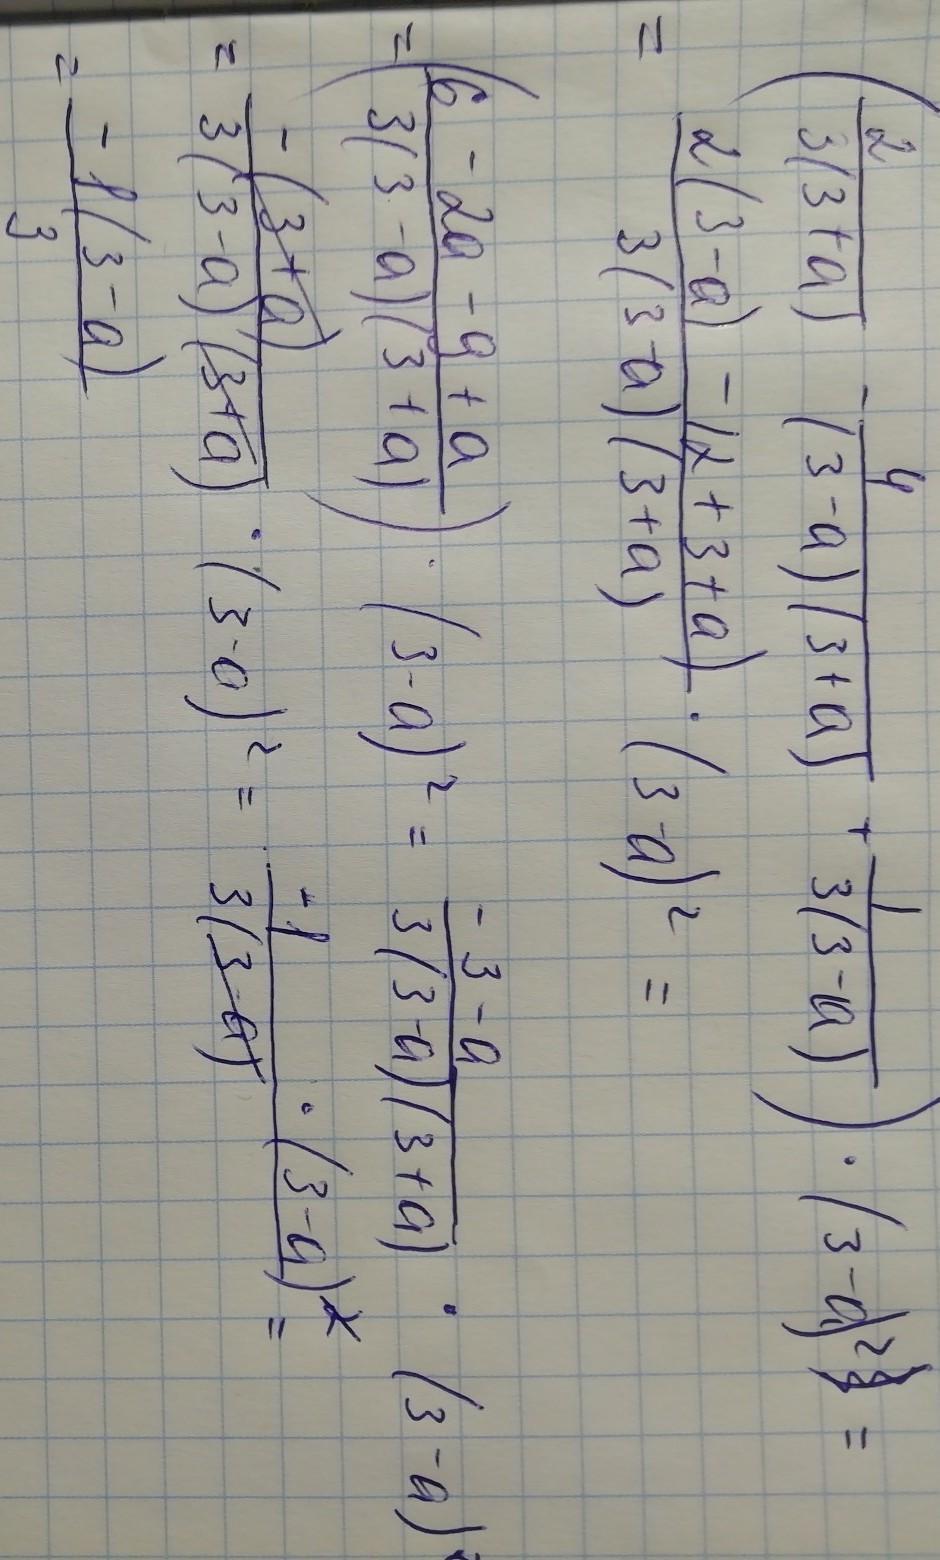 ( 2 / 3(3+a) - 4 / (3-a)(3+a) + 1 / 3(3-a) ) · (3-a)² =
= 2(3-a) - 12 + 3 + a) / 3(3-a)(3+a) · (3-a)² =
= ( 6 - 2a - 9 + a / 3(3-a)(3+a) ) · (3-a)² = -3-a / 3(3-a)(3+a) · (3-a)²
= -(3+a) / 3(3-a)(3+a) · (3-a)² = -1 / 3(3-a) · (3-a)² =
= -1(3-a) / 3